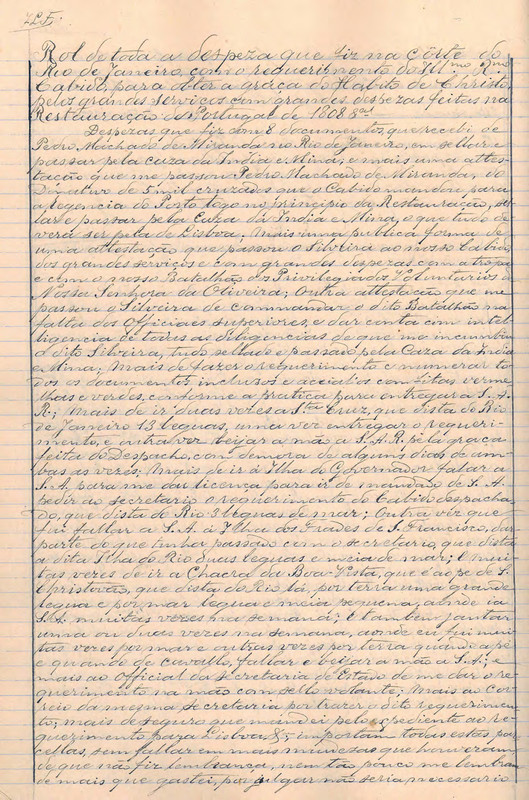 Rol de toda a despeza que fiz na côrte do
Rio de Janeiro, com o requerimento do Ill.mo R.mo
Cabido, para obter a graça do Habito de Christo,
pelos grandes serviços com grandes despezas feitas na
Restauração de Portugal de 1808 &.a
Despezas que fiz com 8 documentos, que recebi de
Pedro Machado de Miranda no Rio de Janeiro, em sellar e
passar pela Caza da India e Mina; e mais uma attes-
tação que me passou Pedro Machado de Miranda, do
Donativo de 5 mil cruzados que o Cabido mandou para
a regencia do Porto logo no principio da Restauração, sel-
lar e passar pela Caza da India e Mina, o que tudo de-
verá ser pela de Lisboa; Mais uma publica forma de
uma attestação que passou o Silveira ao nosso Cabido,
dos grandes serviços e com grandes despezas com a tropa
e com o nosso Batalhão dos Privilegiados Voluntarios de
Nossa Senhora da Oliveira; Outra attestação que me
passou o Silveira de commandar o dito Batalhão na
falta dos Officiaes superiores, e dar conta com intel-
ligencia de todas as diligencias de que me incumbiu
o dito Silveira, tudo sellado e passado pela Caza da India
e Mina; Mais de fazer o requerimento e numerar to-
dos os documentos inclusos e aceial-os com fitas verme-
lhas e verdes, conforme a pratica para entregar a S. A.
R.; Mais de ir duas vezes a S.ta Cruz, que dista do Rio
de Janeiro 13 leguas, uma vez entregar o requeri-
mento, e outra vez beijar a mão a S. A. R. pela graça
feita do Despacho, com demora de alguns dias de am-
bas as vezes; Mais de ir á Ilha do Governador fallar a
S. A. para me dar licença para ir de mandado de S. A.
pedir ao secretario o requerimento do Cabido despacha-
do, que dista do Rio 3 leguas de mar; Outra vez que
fui fallar a S. A. á Ilha dos Frades de S. Francisco, dar
parte do que tinha passado com o secretario, que dista
a dita Ilha do Rio duas leguas e meia de mar; E mui-
tas vezes de ir a Chacra da Boa-Vista, que é ao pé de S.
Christovão, que dista do Rio lá, por terra uma grande
legua e por mar legua e meia pequena, aonde ia
S. A. muitas vezes na semana; e tambem jantar
uma ou duas vezes na semana, aonde eu fui mui-
tas vezes por mar e outras vezes por terra quando a pé
e quando de cavallo, fallar e beijar a mão a S. A.; e
mais ao Official da secretaria de Estado de me dar o re-
querimento na mão com sello volante; Mais ao Cor-
reio da mesma secretaria por trazer o dito requerimen-
to; mais de seguro que mandei pelo expediente ao re-
querimento para Lisboa, &; importam todas estas par-
cellas, sem fallar em mais miudezas que houveram
de que não fiz lembrança, nem tão pouco me lembram
de mais que gastei, por julgar não seria necessario